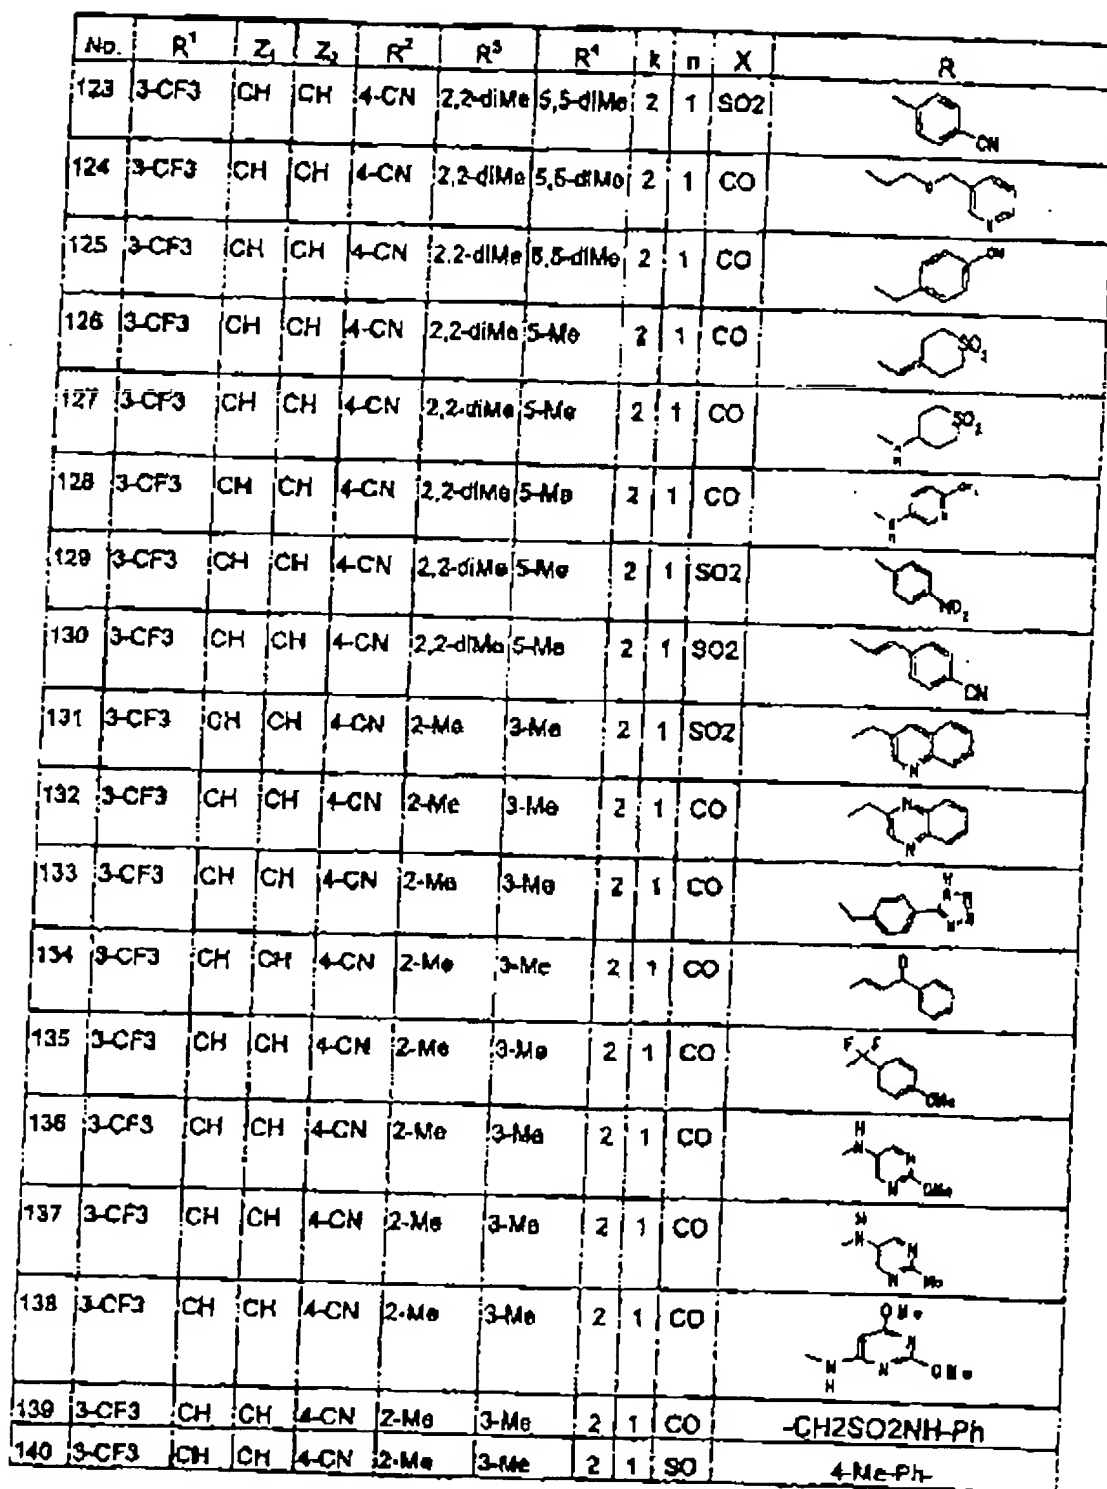 No. R¹ Z₁ Z₃ R² R³ R⁴ k n X R
123 3-CF3 CH CH 4-CN 2,2-diMe 5,5-diMe 2 1 SO2 CN
124 3-CF3 CH CH 4-CN 2,2-diMe 5,5-diMe 2 1 CO
125 3-CF3 CH CH 4-CN 2,2-diMe 5,5-diMe 2 1 CO
126 3-CF3 CH CH 4-CN 2,2-diMe 5-Me 2 1 CO SO₂
127 3-CF3 CH CH 4-CN 2,2-diMe 5-Me 2 1 CO SO₂ N H
128 3-CF3 CH CH 4-CN 2,2-diMe 5-Me 2 1 CO
129 3-CF3 CH CH 4-CN 2,2-diMe 5-Me 2 1 SO2 NO₂
130 3-CF3 CH CH 4-CN 2,2-diMe 5-Me 2 1 SO2 CN
131 3-CF3 CH CH 4-CN 2-Me 3-Me 2 1 SO2 N
132 3-CF3 CH CH 4-CN 2-Me 3-Me 2 1 CO N N
133 3-CF3 CH CH 4-CN 2-Me 3-Me 2 1 CO
134 3-CF3 CH CH 4-CN 2-Me 3-Me 2 1 CO O
135 3-CF3 CH CH 4-CN 2-Me 3-Me 2 1 CO F F OMe
136 3-CF3 CH CH 4-CN 2-Me 3-Me 2 1 CO H N N N OMe
137 3-CF3 CH CH 4-CN 2-Me 3-Me 2 1 CO H N N N Me
138 3-CF3 CH CH 4-CN 2-Me 3-Me 2 1 CO OMe N N OMe N H
139 3-CF3 CH CH 4-CN 2-Me 3-Me 2 1 CO -CH2SO2NH-Ph
140 3-CF3 CH CH 4-CN 2-Me 3-Me 2 1 SO 4-Me-Ph-